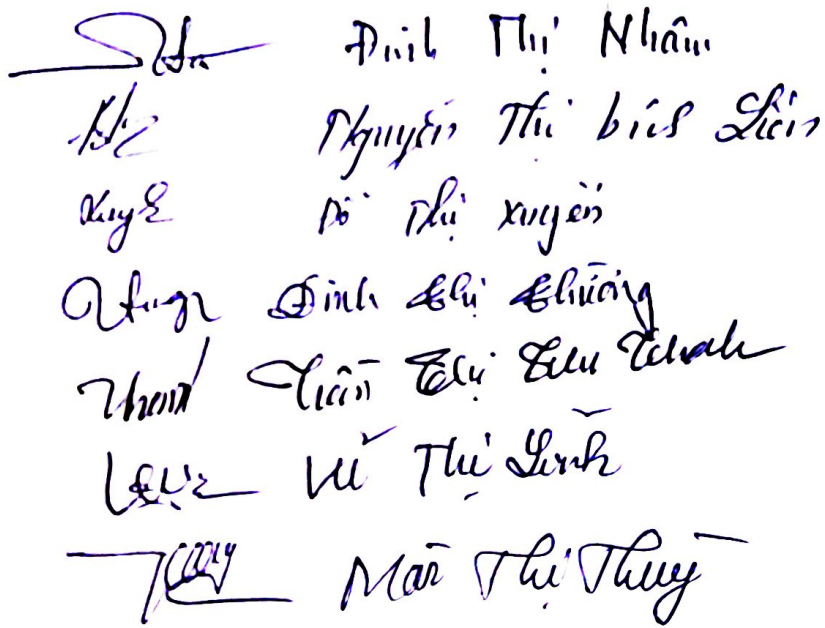 Đinh Thị Nhâm
Nguyễn Thị bích Liên
Xuyế Đỗ Thị Xuyến
Đinh Thị Thường
Trần Thị Thu Thanh
Vũ Thị Linh
Thị Thuỷ